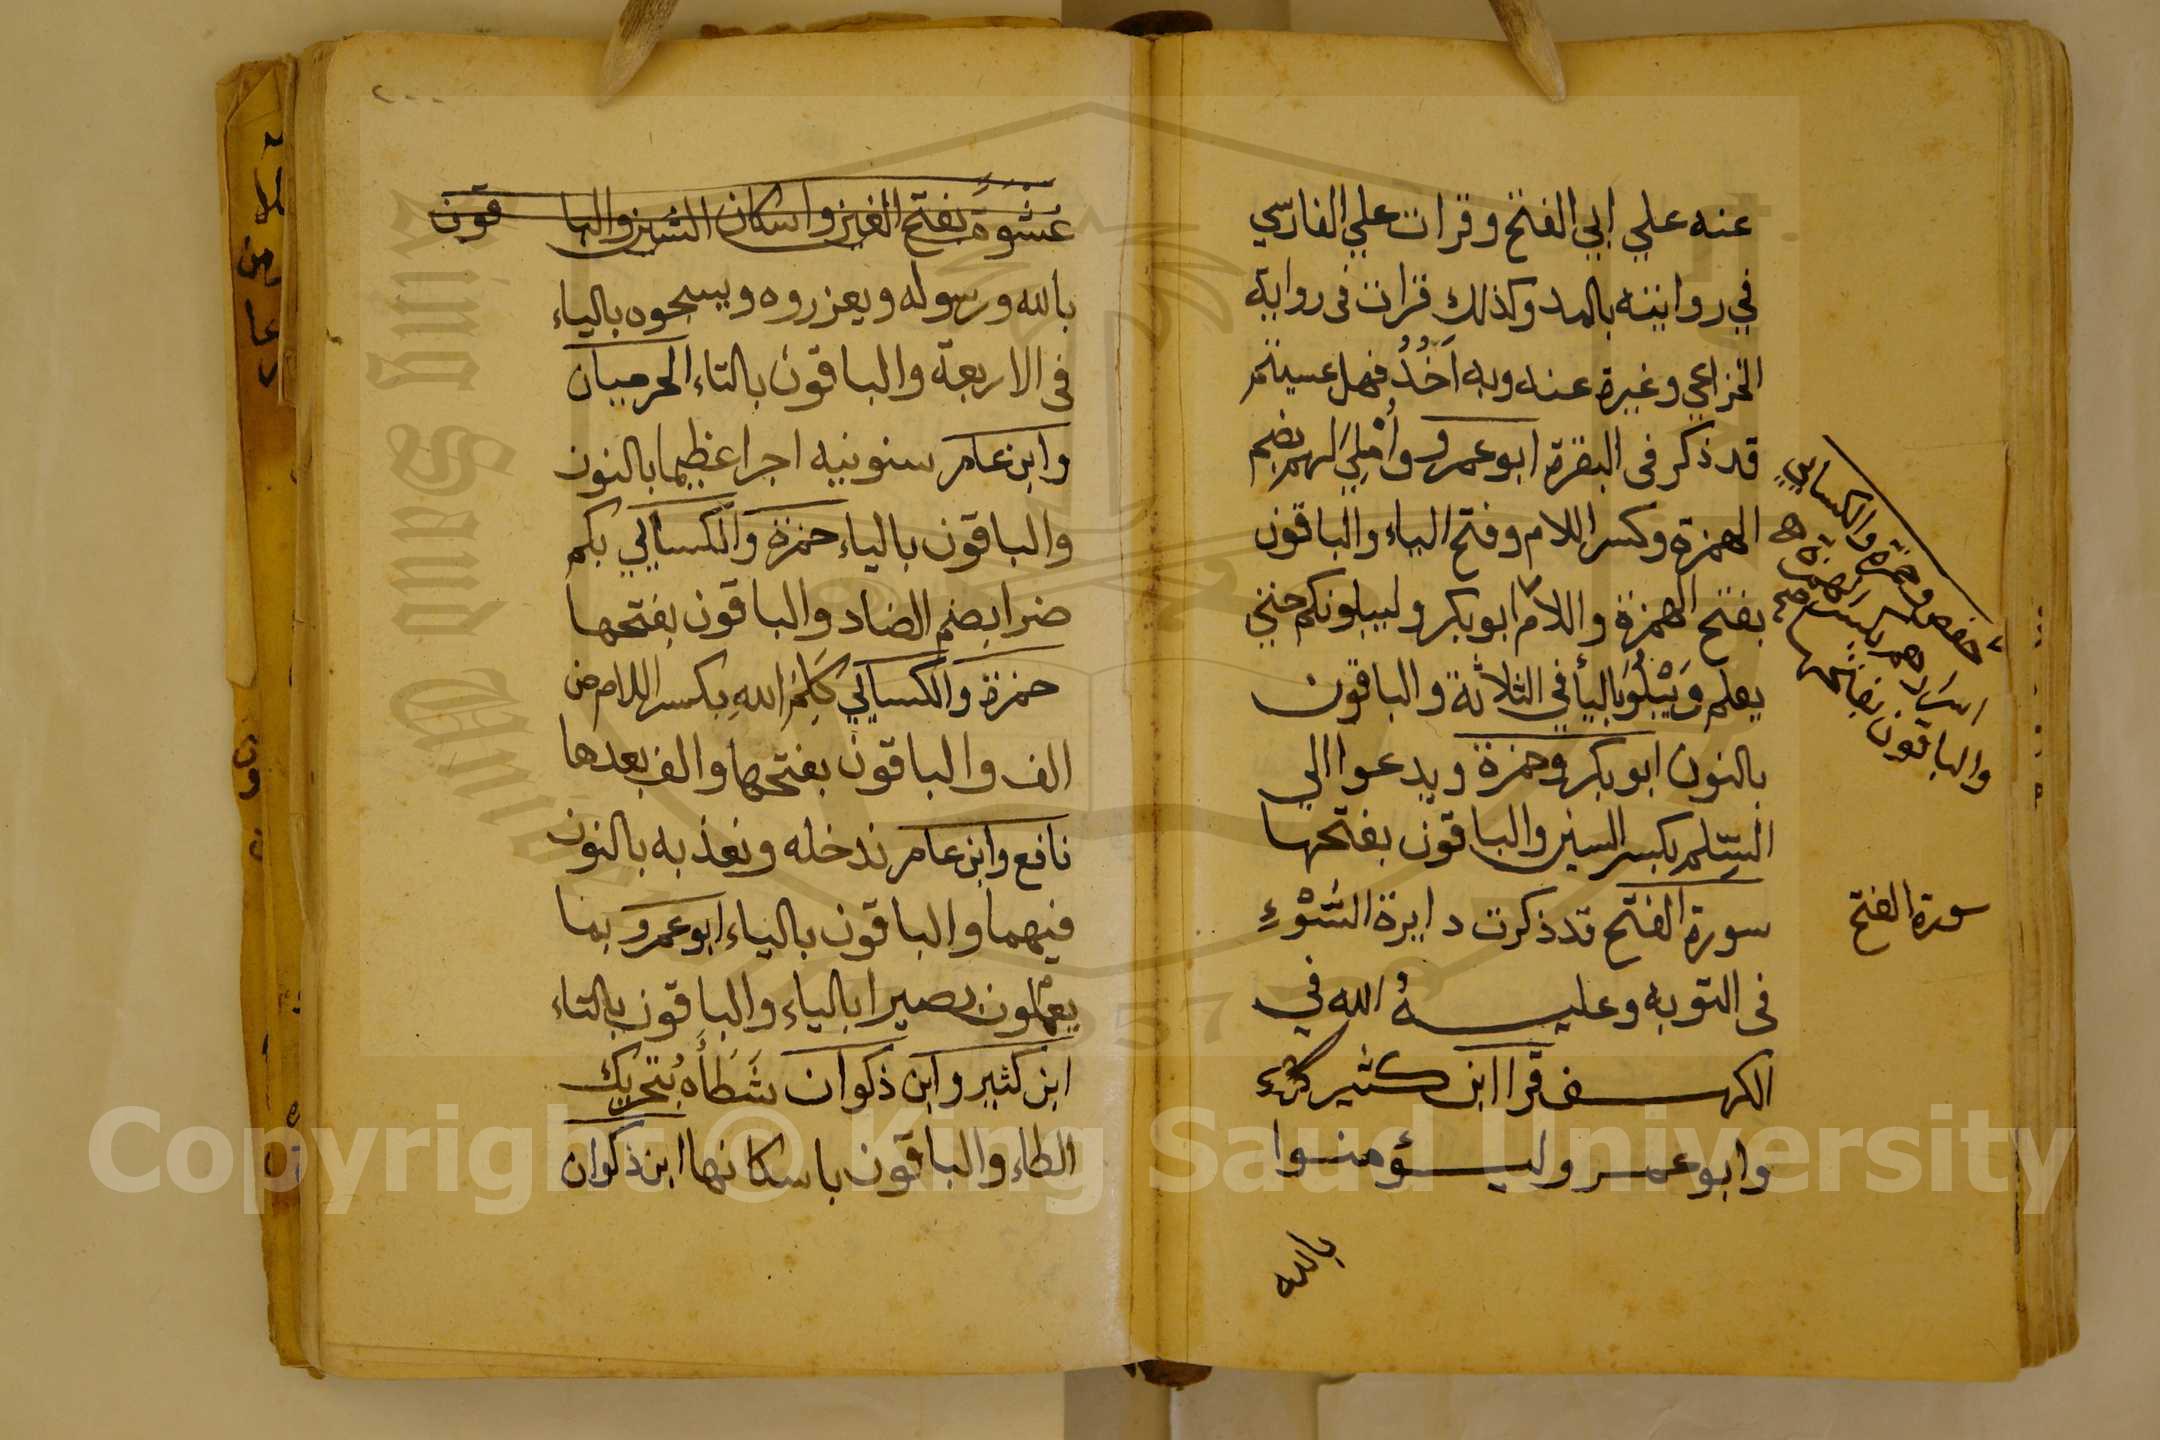 عنه علي ابي الفتح وقرات علي الفارسي
في روايته بالمد وكذلك قرات في رواية
الخزاعي وغيره عنه وبه اَخُذُ فهل عسيتم
قد ذكر في البقرة ابو عمرو وأُمْلِيَ لهم بضم
الهمزة وكسر اللام وفتح الياء والباقون
بفتح الهمزة واللام ابو بكر وليبلونكم حتي
يعلم وَيَبْلُوَ بالياء في الثلاثة والباقون
بالنون ابو بكر وحمزة ويدعوا الي
السِّلم بكسر السين والباقون بفتحها
سورة الفتح قد ذكرت دايرة السَّوْءِ
في التوبه وعليهُ الله في
الكهف قرا ابن كثير
وابو عمرو ليؤمنوا
بالله
حفص وحمزة والكسايي
اسرارهم بكسر الهمزة
والباقون بفتحها
سورة الفتح
٢٠٠
غشوة بفتح الغين واسكان الشين والباقون
بالله ورسوله ويعزروه ويسبحوه بالياء
في الاربعة والباقون بالتاء الحرميان
وابن عامر سنوتيه اجرا عظيما بالنون
والباقون بالياء حمزة والكسايي بكم
ضرا بضم الضاد والباقون بفتحها
حمزة والكسايي كَلِمَ اللهِ بكسر اللام من
الف والباقون بفتحها والف بعدها
نافع وابن عامر ندخله ونعذبه بالنون
فيهما والباقون بالياء ابو عمرو بما
يعملون بصيرا بالياء والباقون بالتاء
ابن كثير وابن ذكوان شَطَأَهُ بتحريك
الطاء والباقون باسكانها ابن ذكوان
Copyright © King Saud University
King Saud University
1957